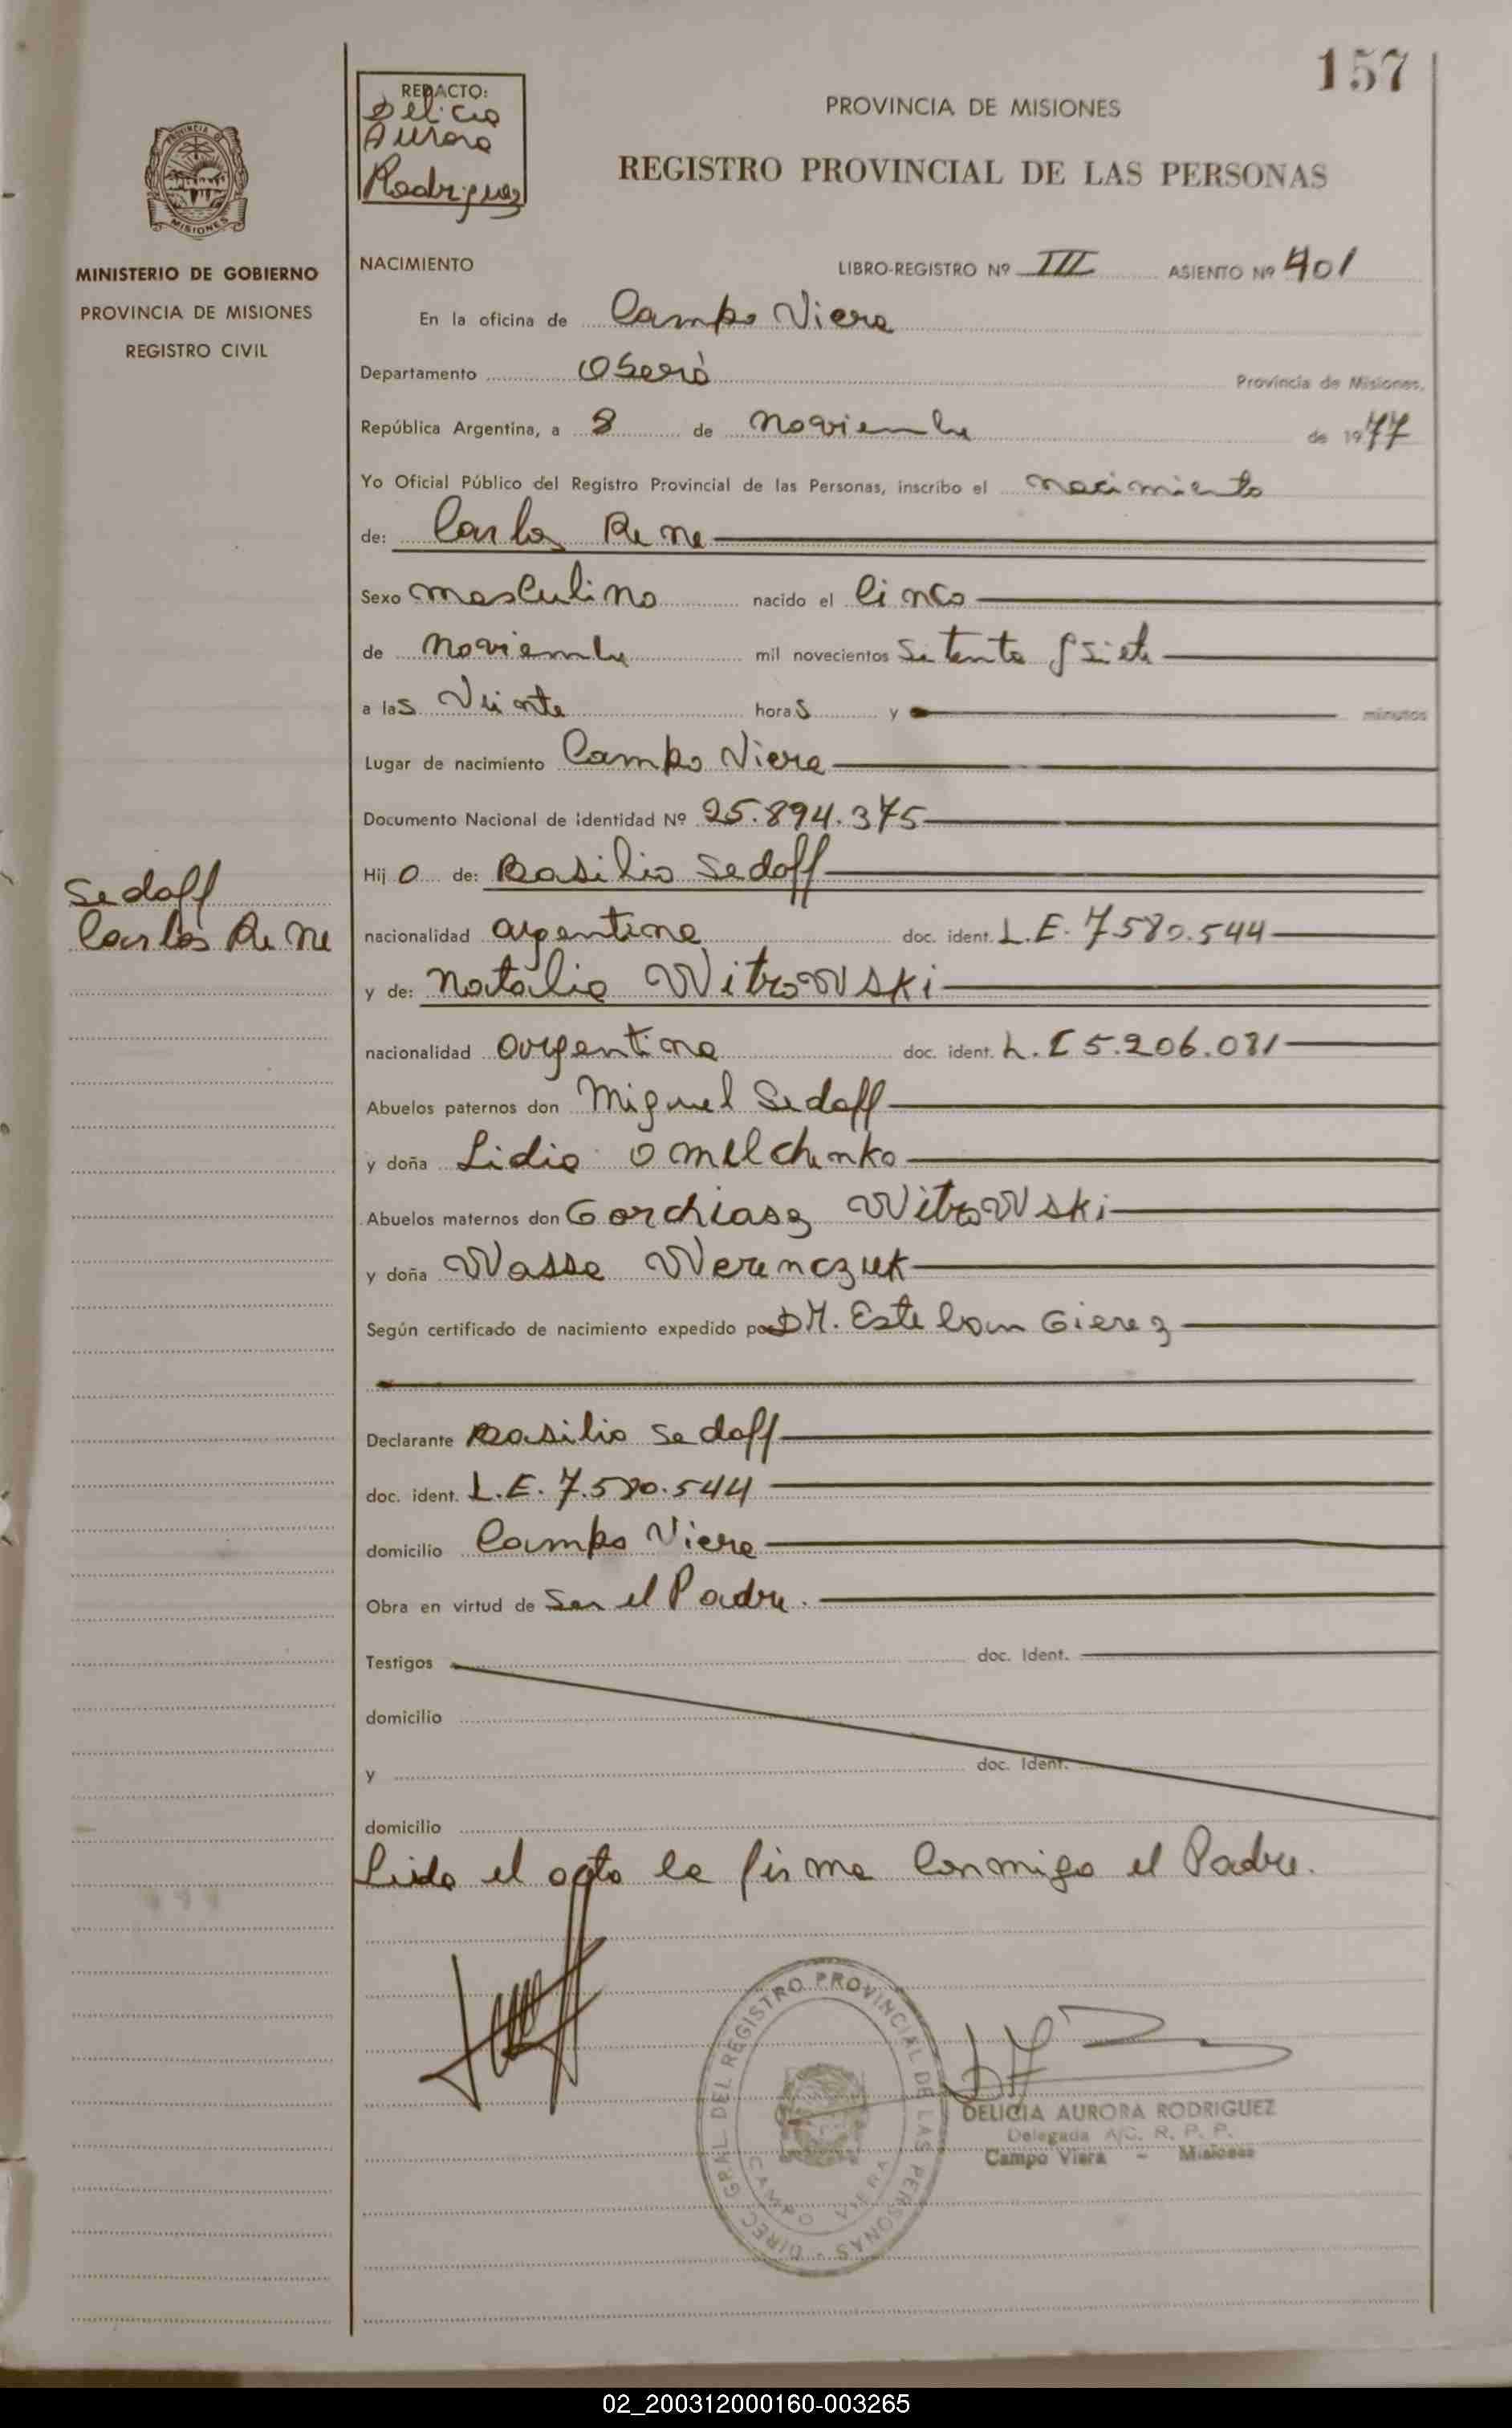 157
REDACTO:
Delicia
Aurora
Rodriguez
PROVINCIA DE MISIONES
REGISTRO PROVINCIAL DE LAS PERSONAS
MISIONES
MINISTERIO DE GOBIERNO
PROVINCIA DE MISIONES
REGISTRO CIVIL
NACIMIENTO LIBRO-REGISTRO Nº III ASIENTO Nº 401
En la oficina de Campo Viera
Departamento Oberá Provincia de Misiones.
República Argentina, a 8 de Noviembre de 1977
Yo Oficial Público del Registro Provincial de las Personas, inscribo el nacimiento
de: Carlos Rene
Sexo masculino nacido el Cinco
de Noviembre mil novecientos Setenta y siete
a las Veinte horas y minutos
Lugar de nacimiento Campo Viera
Documento Nacional de identidad Nº 25.894.375
Hijo de: Basilio Sedoff
Sedoff
Carlos Rene
nacionalidad argentina doc. ident. L.E. 7580.544
y de: Natalia Witrowski
nacionalidad argentina doc. ident. L. C 5.206.081
Abuelos paternos don Miguel Sedoff
y doña Lidia Omelchenko
Abuelos maternos don Gorchiasz Witrowski
y doña Wassa Werenczuk
Según certificado de nacimiento expedido por DM. Esteban Gierez
Declarante Basilio Sedoff
doc. ident. L.E. 7.580.544
domicilio Campo Viera
Obra en virtud de Ser el Padre.
Testigos doc. Ident.
domicilio
y doc. Ident.
domicilio
Leida el acta la firma Conmigo el Padre.
DIREC. GRAL. DEL REGISTRO PROVINCIAL DE LAS PERSONAS -
CAMPO VIERA
DELICIA AURORA RODRIGUEZ
Delegada A/C. R. P. P.
Campo Viera - Misiones
02_200312000160-003265